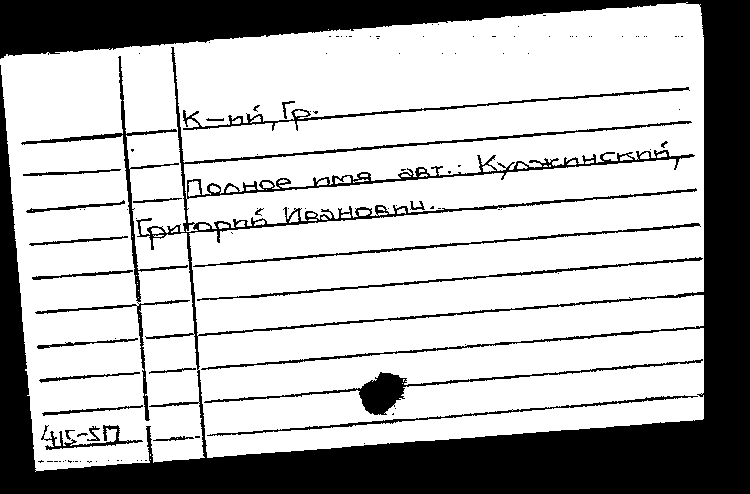 К-ий, Гр.
Полное имя авт.: Кулжинский,
Григорий Иванович.
415-517